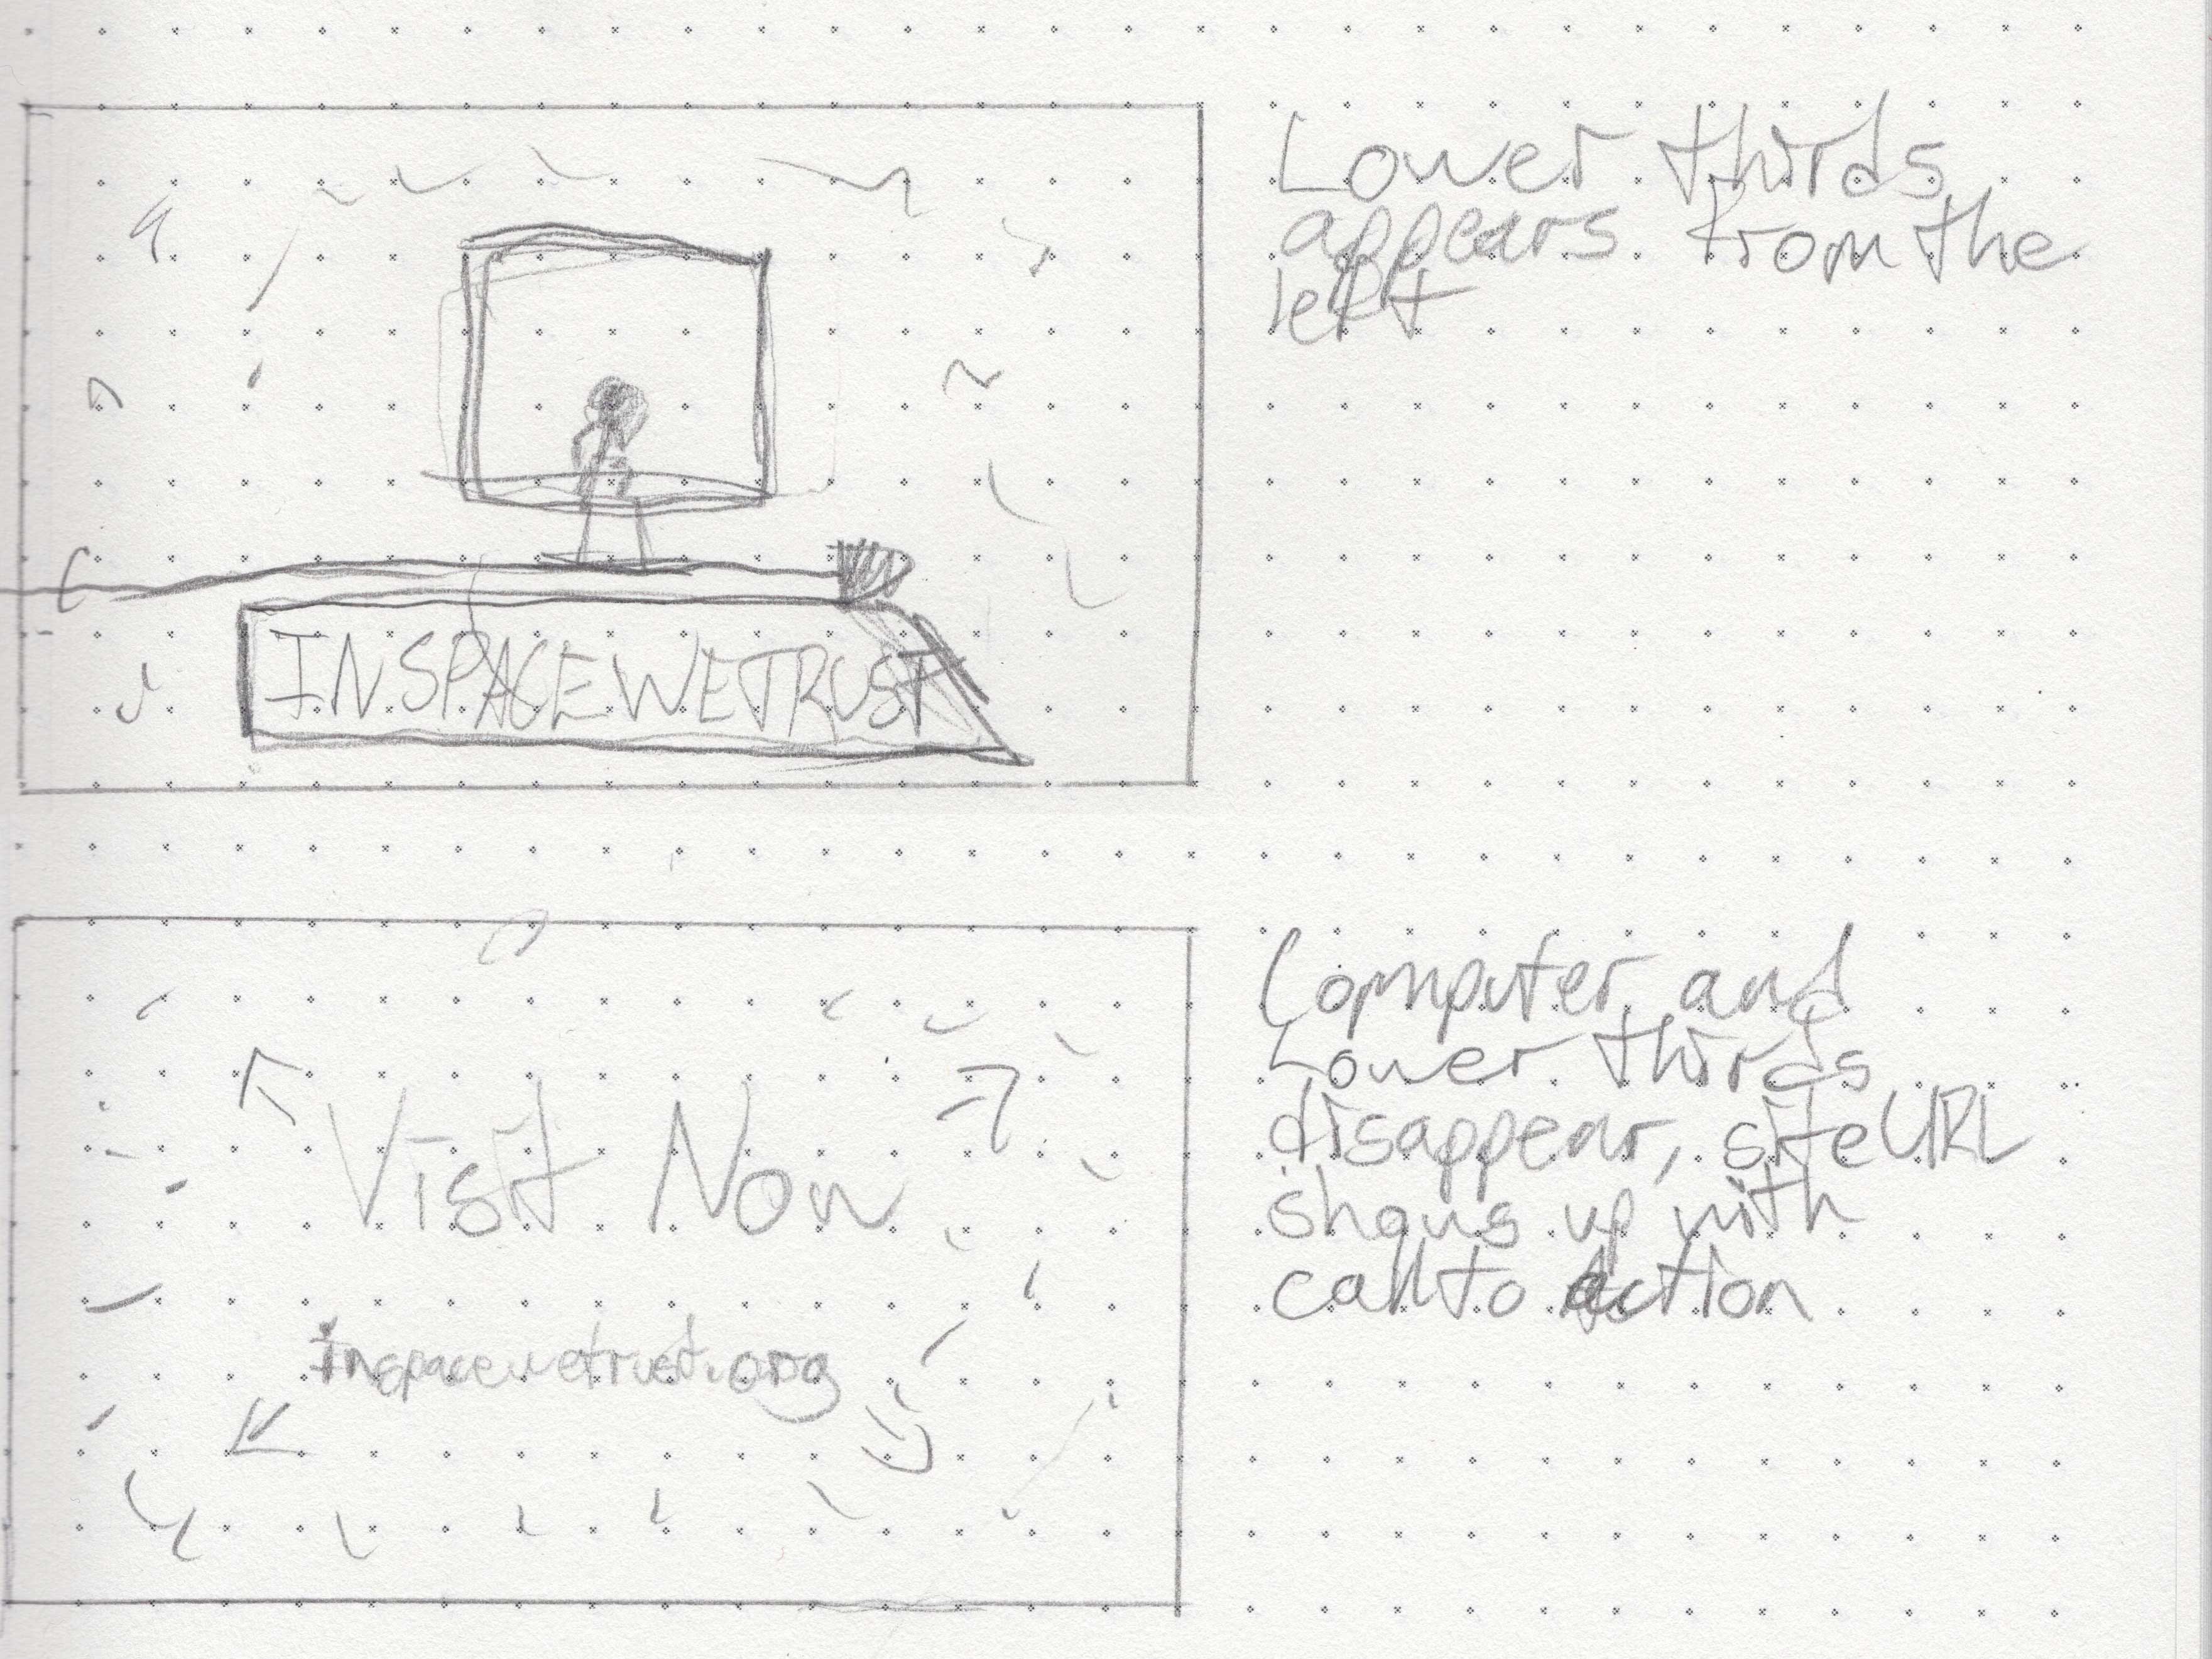 Lower thirds
appears from the
left
INSPACEWETRUST
Computer and
Lower thirds
disappear, site URL
shows up with
call to action
Visit Now
inspacewetrust.org